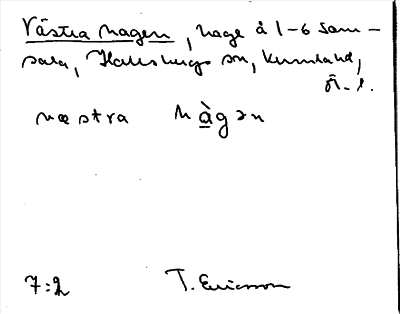 Västra hagen, hage å 1-6 Sam-
sala, Hallsbergs sn, Kumlahd,
Ö. l.
væstra hàgən
7:2 T. Ericsson